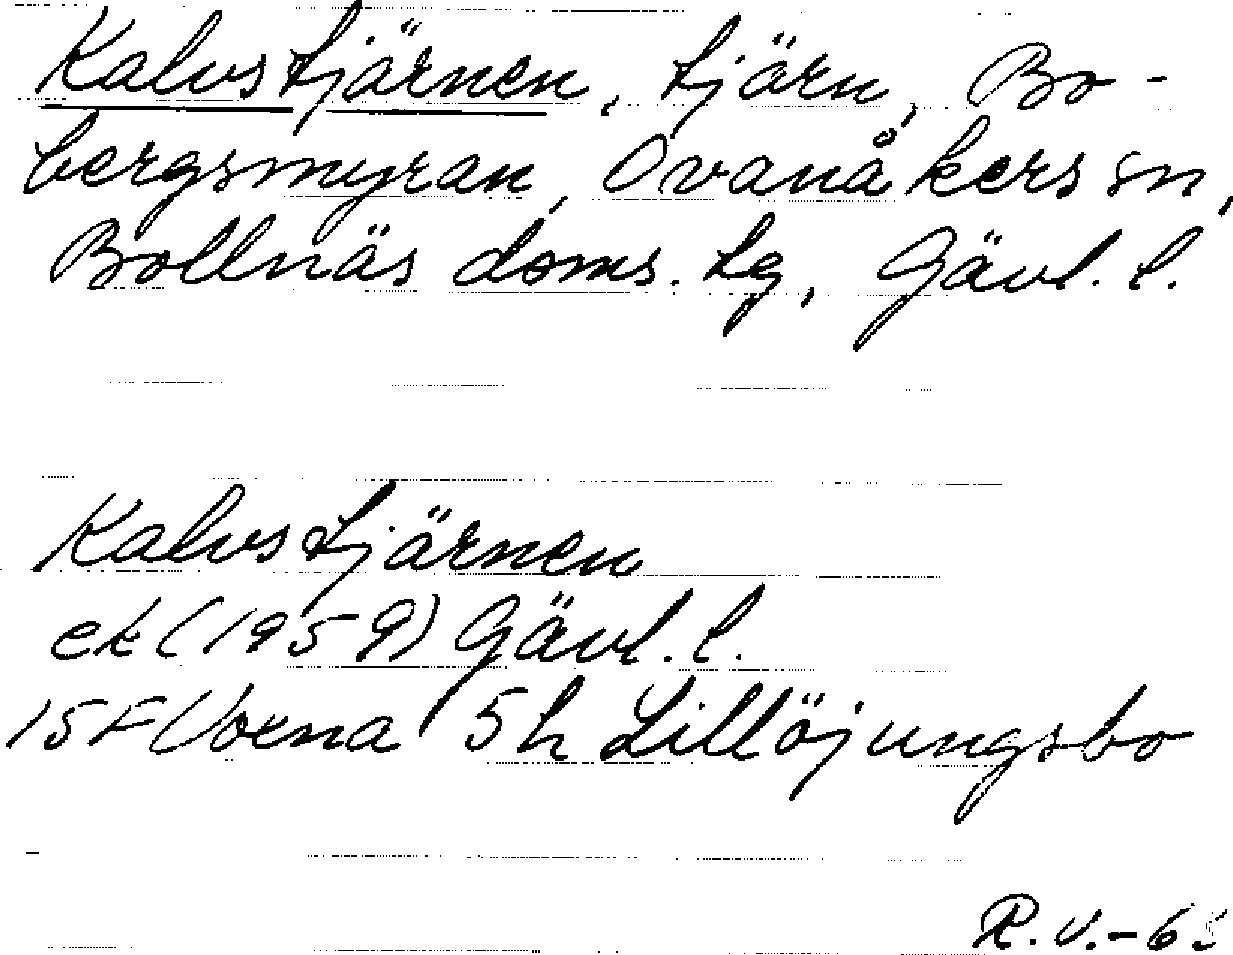 Kalvstjärnen, tjärn, Bo-
bergsmyran, Ovanåkers sn,
Bollnäs doms. tg, Gävl. l.
Kalvstjärnen
ek (1959) Gävl. l.
15F Voxna 5h Lillöjungsbo
R.V.-